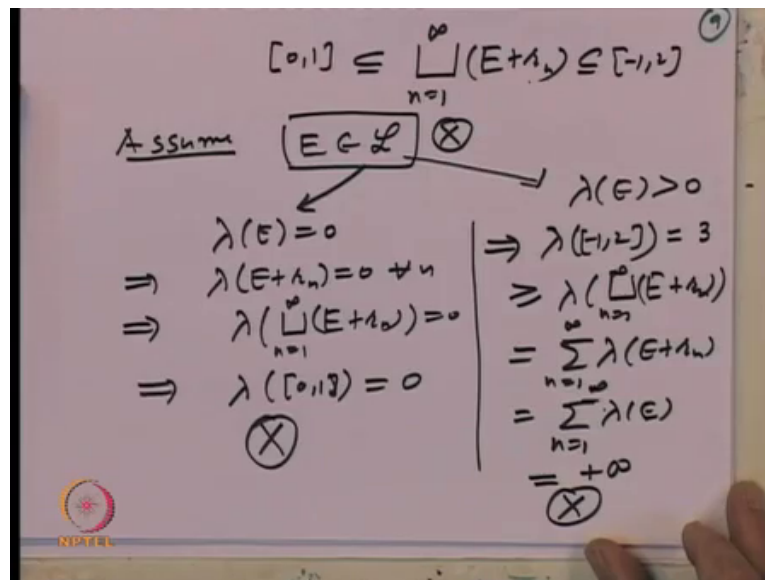 9
[0,1] ⊆ ⨆_{n=1}^{∞} (E+r_n) ⊆ [-1,2]
Assume E ∈ ℒ ⊗
λ(E)=0
⇒ λ(E+r_n)=0 ∀ n
⇒ λ(⨆_{n=1}^{∞}(E+r_n))=0
⇒ λ([0,1])=0
⊗
λ(E)>0
⇒ λ([-1,2])=3
≥ λ(⨆_{n=1}^{∞}(E+r_n))
= ∑_{n=1}^{∞} λ(E+r_n)
= ∑_{n=1}^{∞} λ(E)
= +∞
⊗
NPTEL